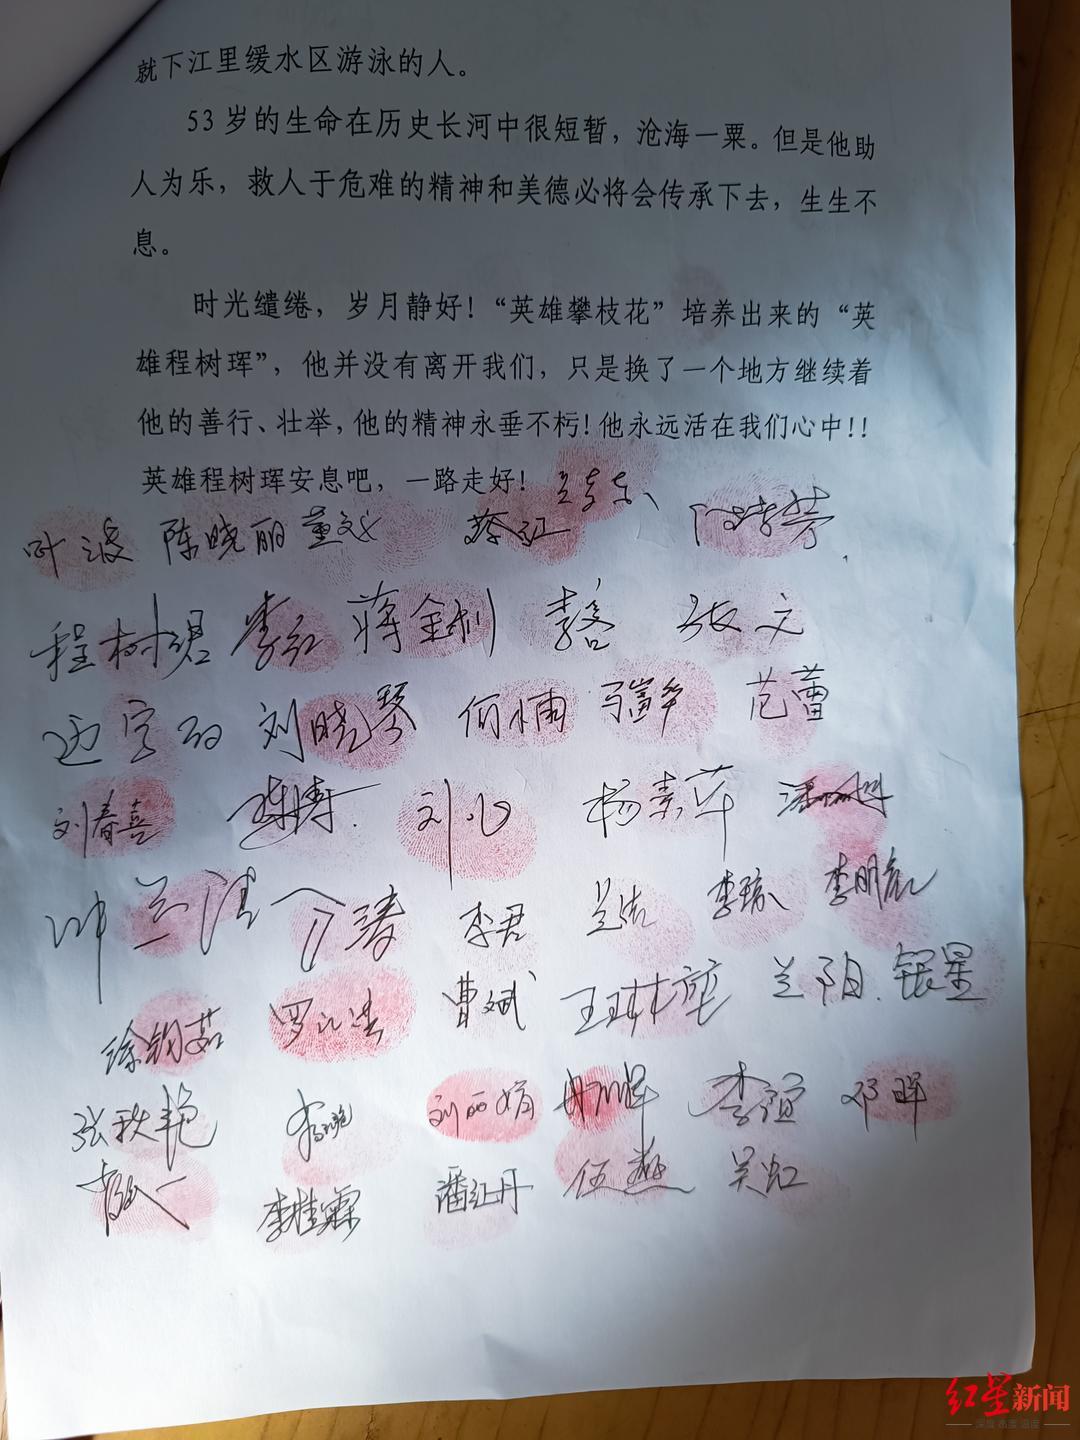 就下江里缓水区游泳的人。
53岁的生命在历史长河中很短暂，沧海一粟。但是他助
人为乐，救人于危难的精神和美德必将会传承下去，生生不
息。
时光缱绻，岁月静好！“英雄攀枝花”培养出来的“英
雄程树珲”，他并没有离开我们，只是换了一个地方继续着
他的善行、壮举，他的精神永垂不朽！他永远活在我们心中！！
英雄程树珲安息吧，一路走好！
叶波 陈晓丽 董文 蔡红
程树琨 李红 蒋金利 李容 张文
刘晓琴 何小雨 马富华 范蕾
刘春喜 陈涛 刘心 杨素华
李君 兰浩 李琼 李明亮
徐钧茹 曹斌 王琳 兰阳 银星
张秋艳 刘丽娟 冉川晖 李谊 邓晖
李桂霖 潘红丹 伍燕 吴虹
红星新闻
深度 态度 温度